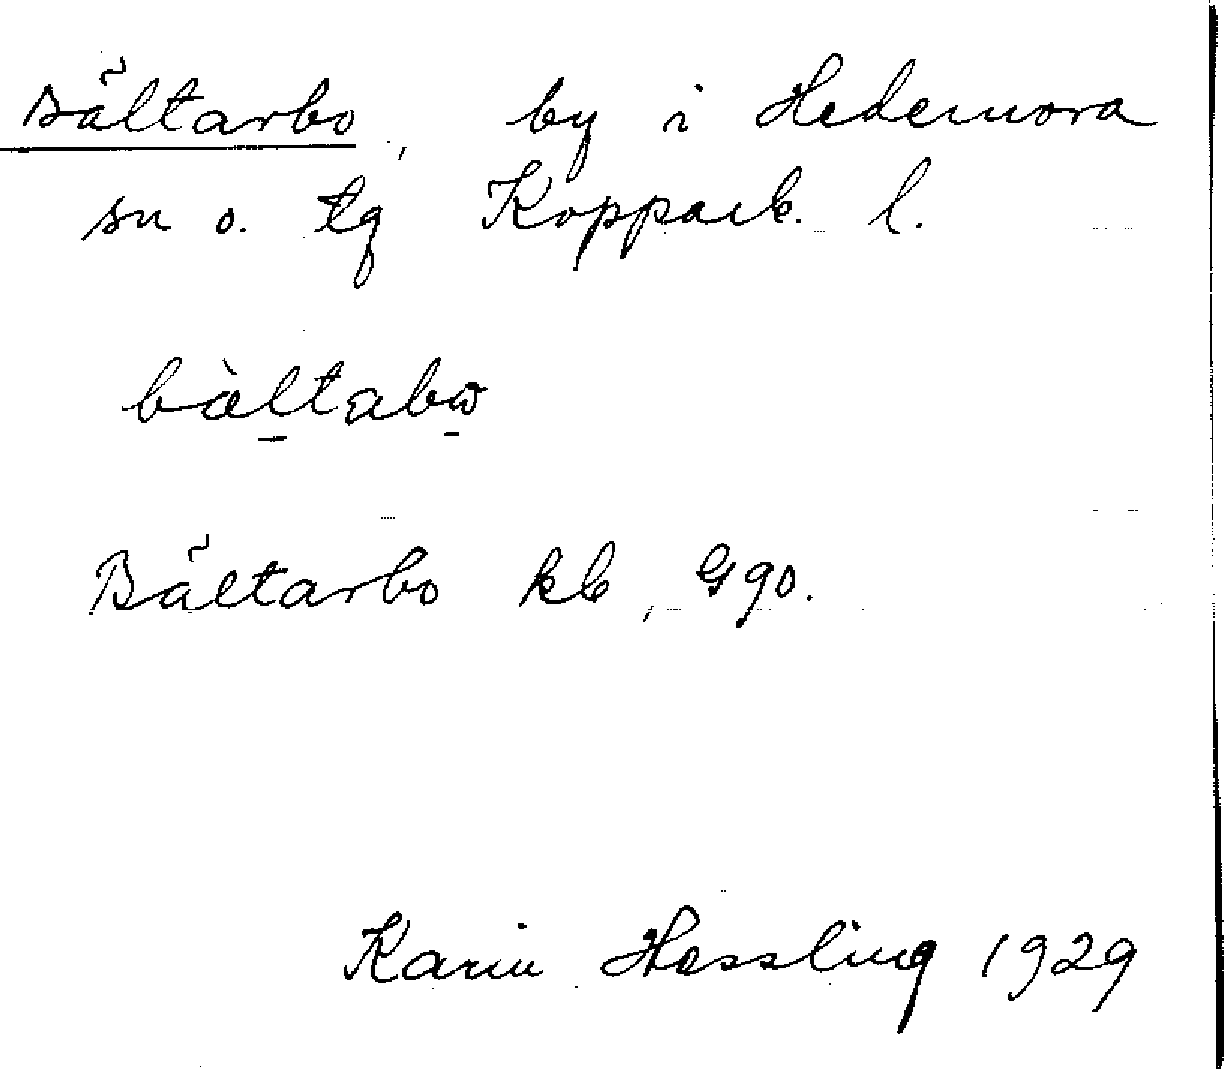 Bältarbo, by i Hedemora
sn o. tg Kopparb. l.
bàltabω
Bältarbo kb, Ggo.
Karin Hessling 1929